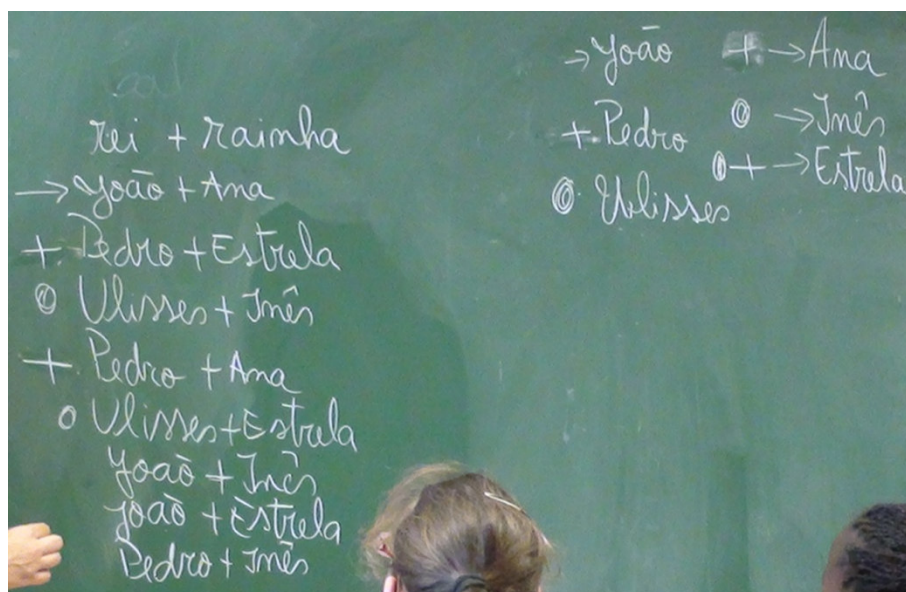 rei + rainha
→ João + Ana
+ Pedro + Estrela
Ulisses + Inês
+ Pedro + Ana
Ulisses + Estrela
João + Inês
João + Estrela
Pedro + Inês
→ João
+ Pedro
Ulisses
+ → Ana
→ Inês
+ → Estrela